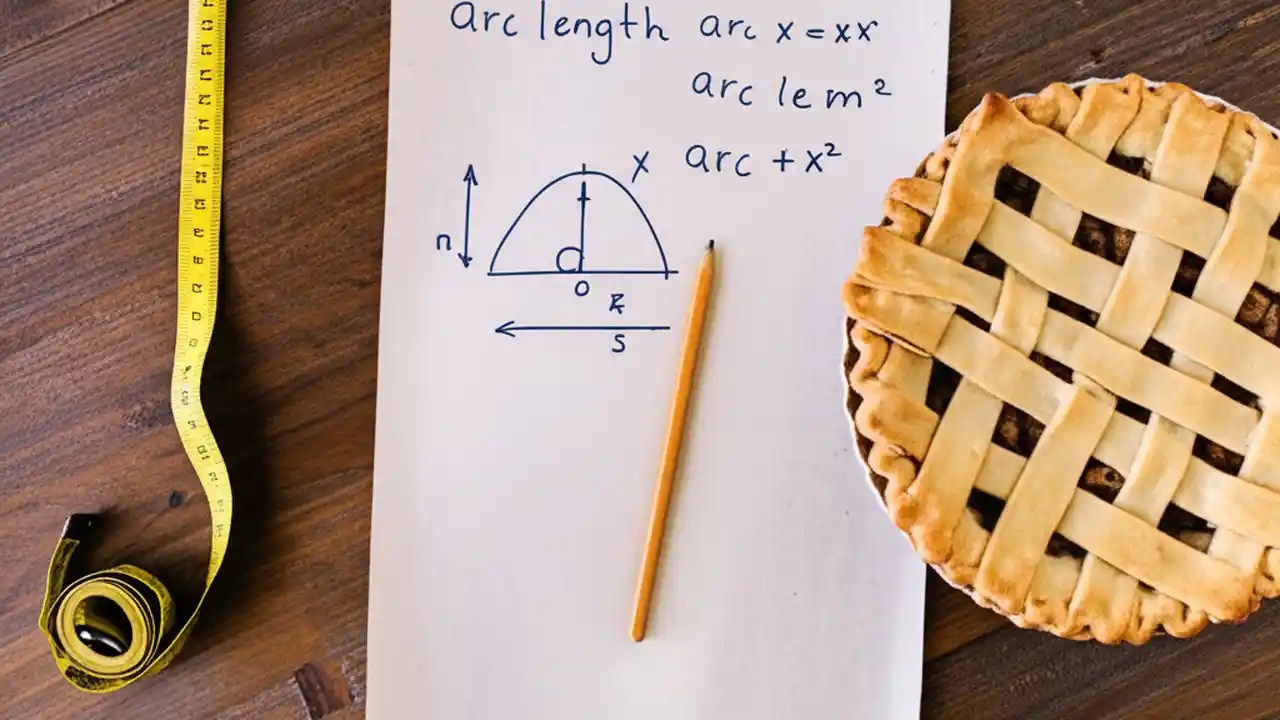 arc length arc x = xx
arc le m²
x arc + x²
n
o
s